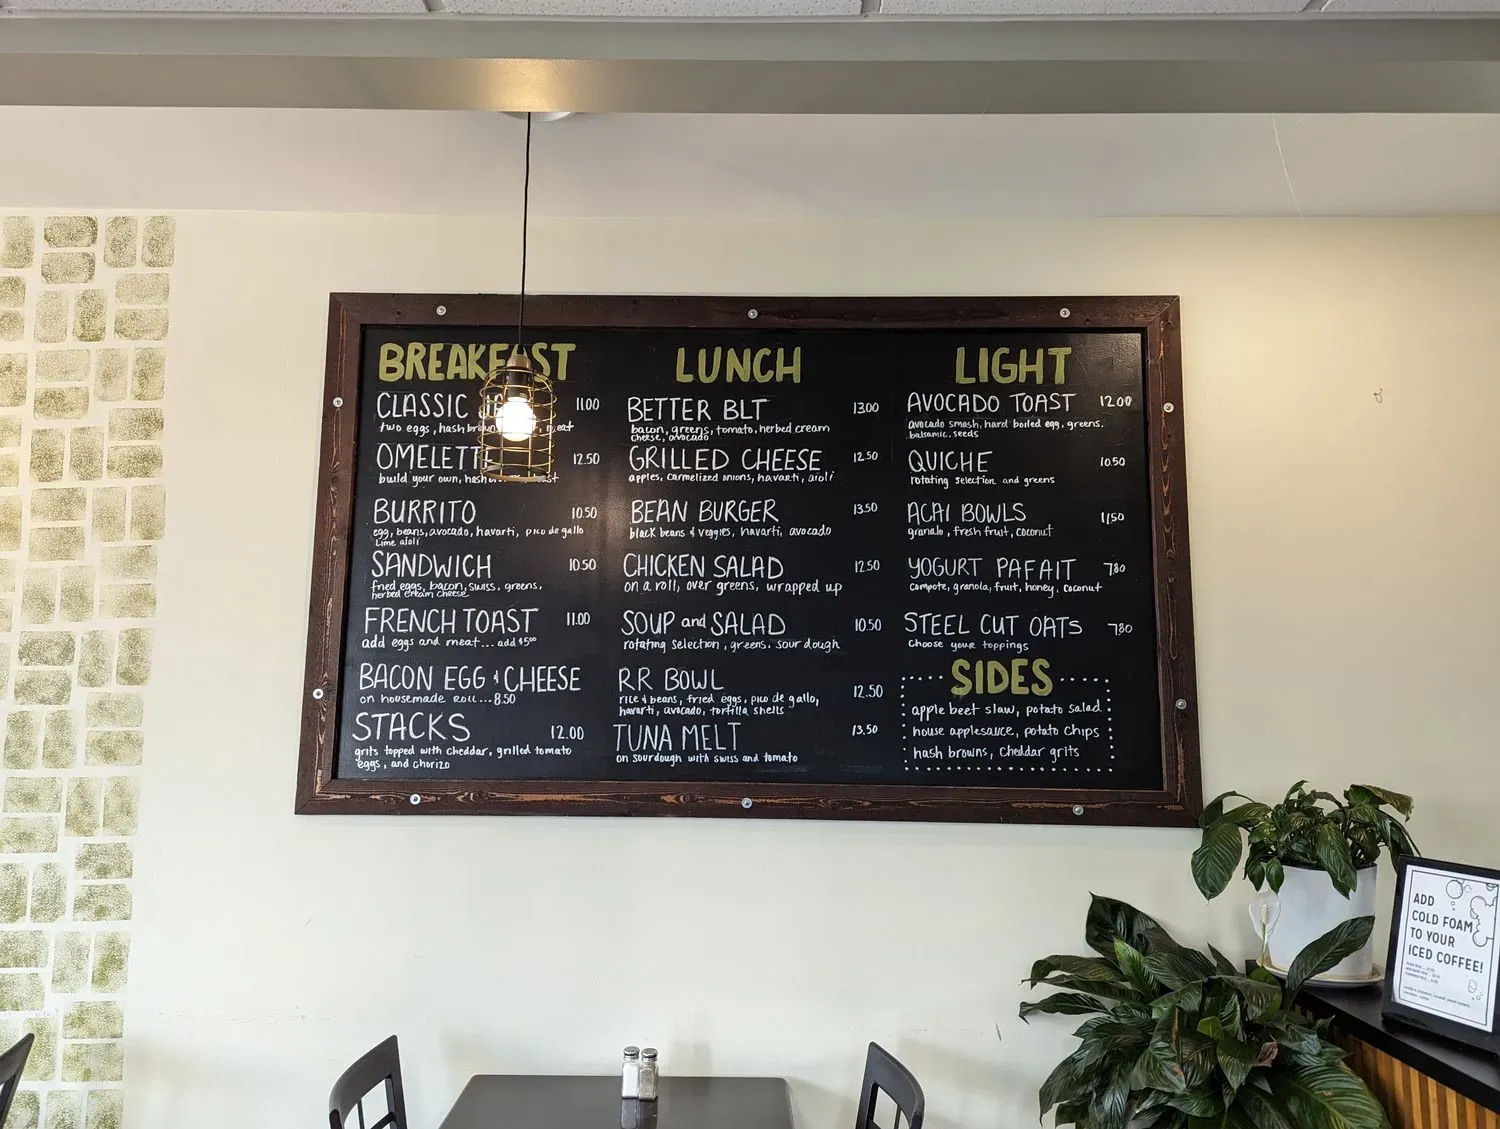 BREAKFAST
CLASSIC 11.00
two eggs, hash brown, meat
OMELETTE 12.50
build your own, hash toast
BURRITO 10.50
egg, beans, avocado, havarti, pico de gallo
Lime aioli
SANDWICH 10.50
fried eggs, bacon, swiss, greens,
herbed cream cheese
FRENCH TOAST 11.00
add eggs and meat... add $5⁰⁰
BACON EGG & CHEESE
on housemade roll...8.50
STACKS 12.00
grits topped with cheddar, grilled tomato
eggs, and chorizo
LUNCH
BETTER BLT 13.00
bacon, greens, tomato, herbed cream
cheese, avocado
GRILLED CHEESE 12.50
apples, carmelized onions, havarti, aioli
BEAN BURGER 13.50
black beans & veggies, havarti, avocado
CHICKEN SALAD 12.50
on a roll, over greens, wrapped up
SOUP and SALAD 10.50
rotating selection, greens, sourdough
RR BOWL 12.50
rice & beans, fried eggs, pico de gallo,
havarti, avocado, tortilla shells
TUNA MELT 13.50
on sourdough with swiss and tomato
LIGHT
AVOCADO TOAST 12.00
avocado smash, hard boiled egg, greens,
balsamic, seeds
QUICHE 10.50
rotating selection and greens
ACAI BOWLS 11.50
granola, fresh fruit, coconut
YOGURT PAFAIT 7.80
compote, granola, fruit, honey, coconut
STEEL CUT OATS 7.80
choose your toppings
SIDES
apple beet slaw, potato salad
house applesauce, potato chips
hash browns, cheddar grits
ADD
COLD FOAM
TO YOUR
ICED COFFEE!